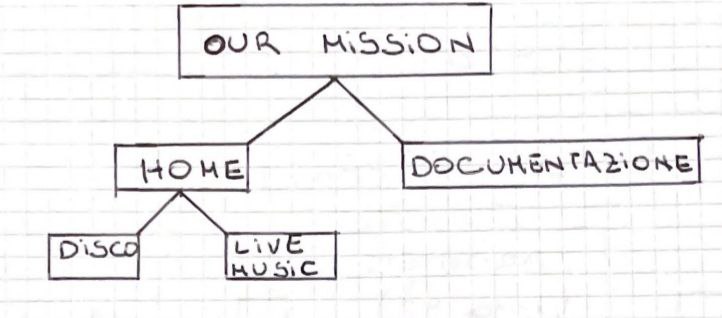 OUR MISSION
HOME
DOCUMENTAZIONE
DISCO
LIVE
MUSIC